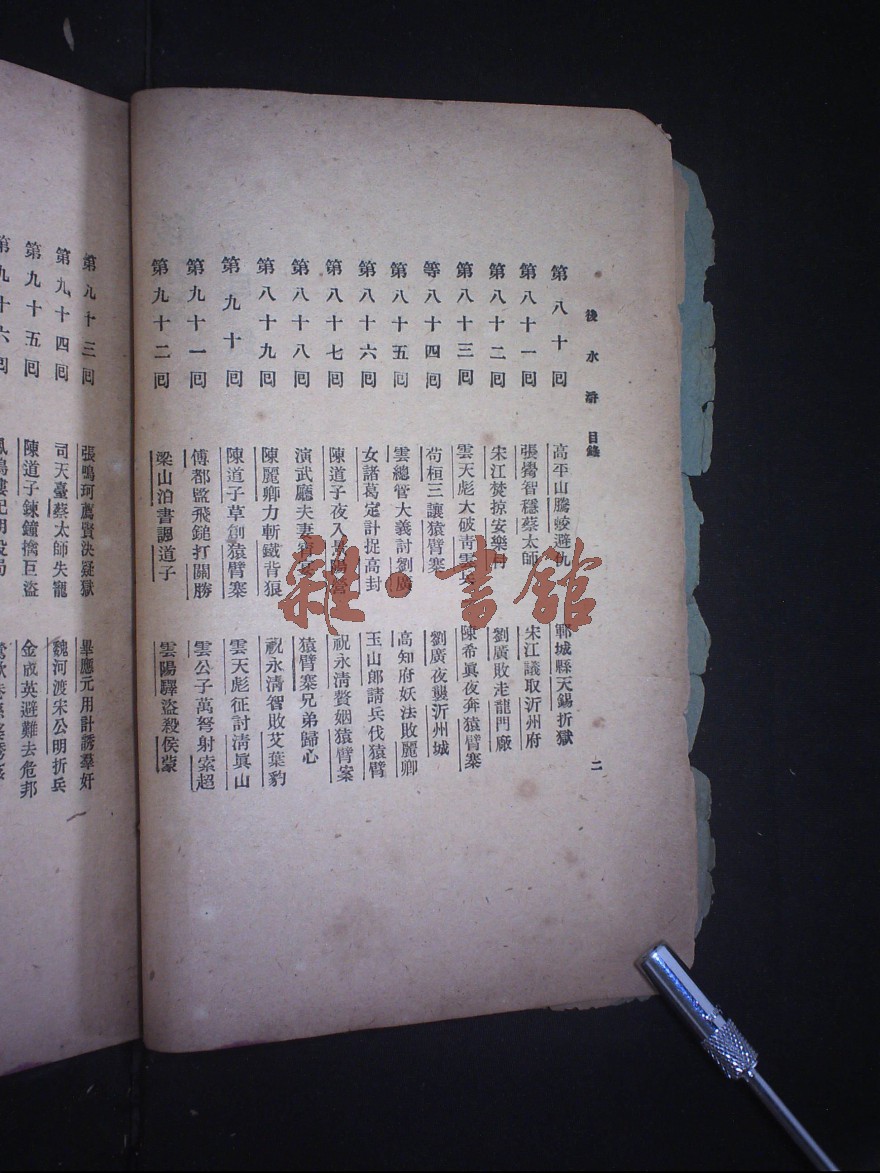 後水滸 目錄 二
第八十回 高平山騰蛟避仇 鄆城縣天錫折獄
第八十一回 張觷智穩蔡太師 宋江議取沂州府
第八十二回 宋江焚掠安樂村 劉廣敗走龍門厰
第八十三回 雲天彪大破青雲兵 陳希眞夜奔猿臂寨
等八十四回 苟桓三讓猿臂寨 劉廣夜襲沂州城
第八十五回 雲總管大義討劉廣 高知府妖法敗麗卿
第八十六回 女諸葛定計捉高封 玉山郎請兵伐猿臂
第八十七回 陳道子夜入景陽營 祝永清贅姻猿臂寨
第八十八回 演武廳夫妻宵宴 猿臂寨兄弟歸心
第八十九回 陳麗卿力斬鐵背狼 祝永清智敗艾葉豹
第九十回 陳道子草創猿臂寨 雲天彪征討清眞山
第九十一回 傅都監飛鎚打關勝 雲公子萬弩射索超
第九十二回 梁山泊書諷道子 雲陽驛盜殺侯蒙
第九十三回 張鳴珂薦賢決疑獄 畢應元用計誘羣奸
第九十四回 司天臺蔡太師失寵 魏河渡宋公明折兵
第九十五回 陳道子鍊鐘擒巨盜 金成英避難去危邦
第九十六回
雜·書館